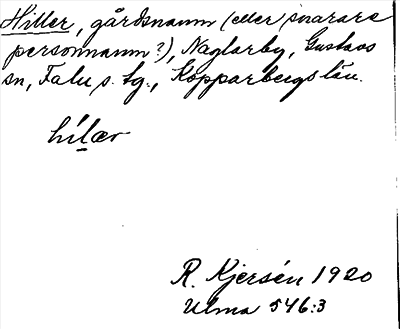 Hiller, gårdsnamn (eller snarare
personnamn?), Naglarby, Gustavs
sn, Falu s. tg., Kopparbergs län.
hilær
R. Kjersén 1920
Ulma 546:3